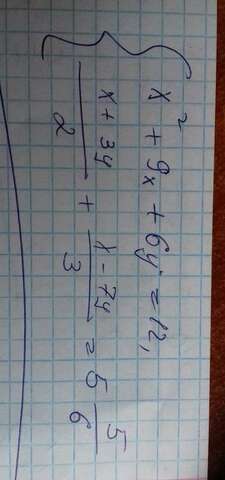 { x² + 9x + 6y = 12,
(x + 3y)/2 + (x - 7y)/3 = 5 5/6